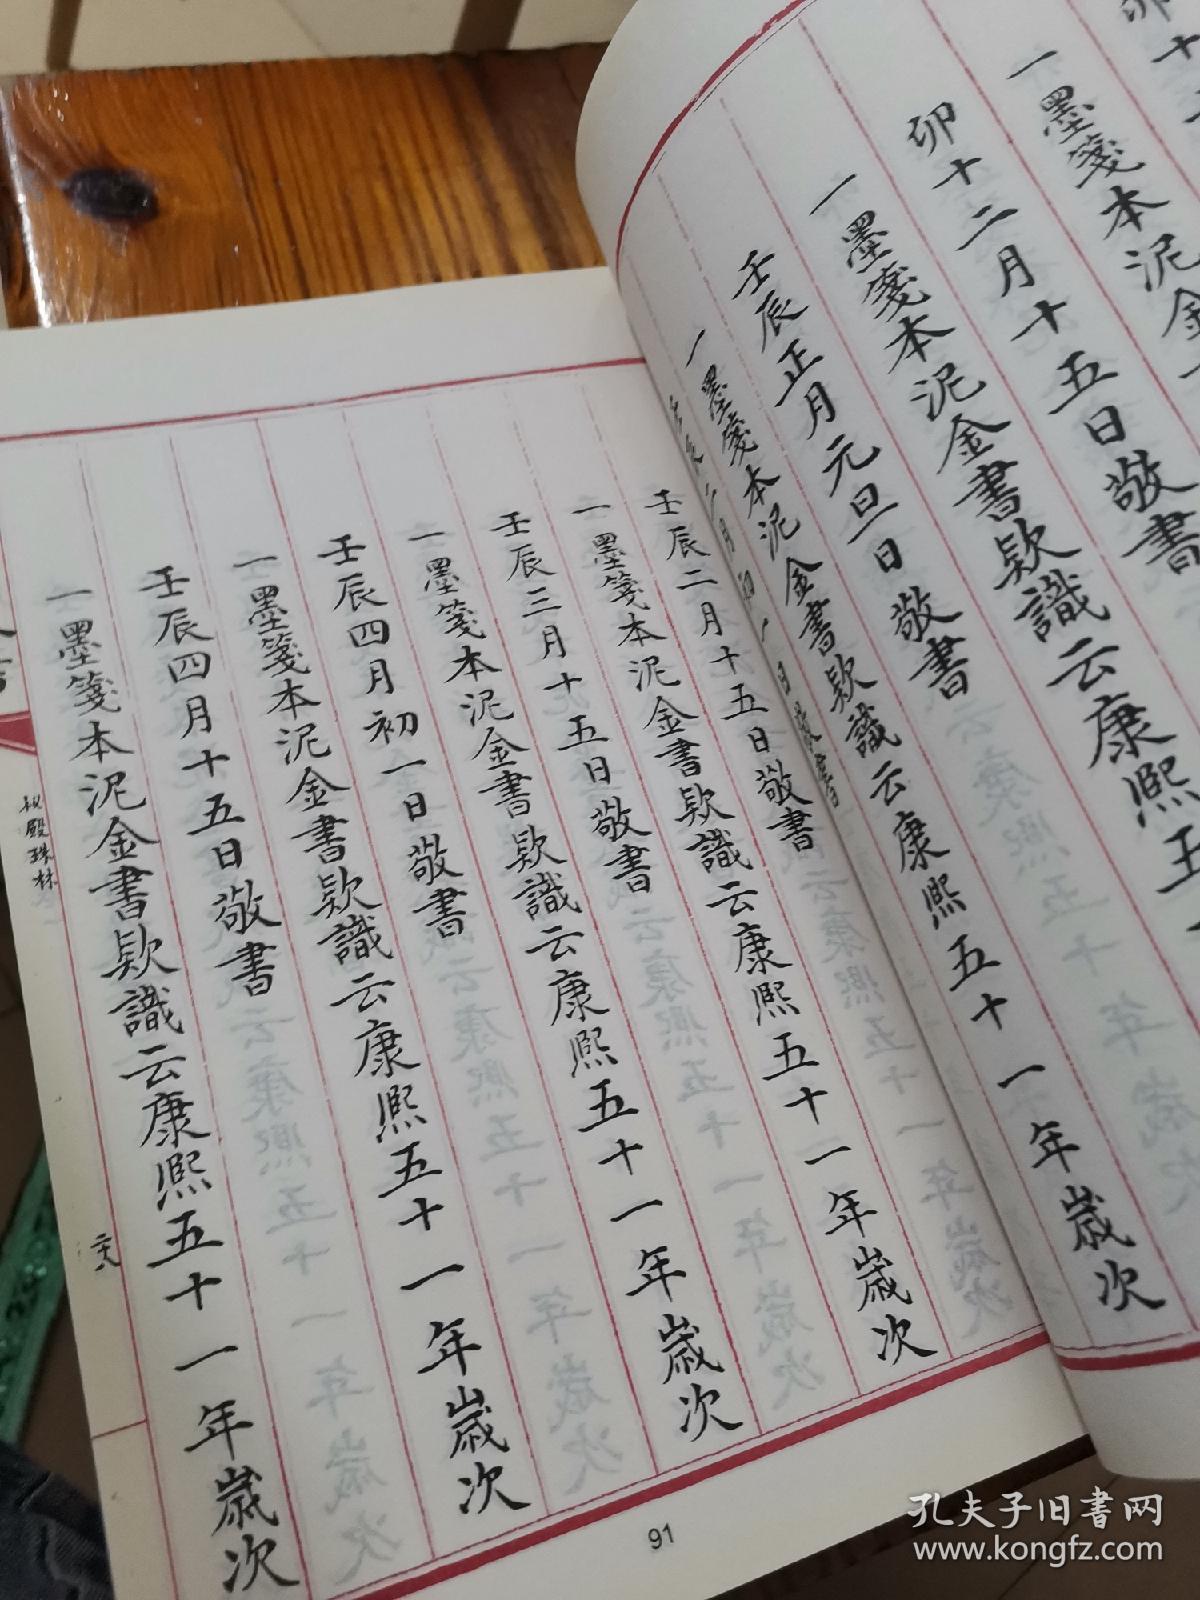 卯十
一墨箋本泥金
卯十二月十五日敬書
一墨箋本泥金書欵識云康熙五
壬辰正月元旦日敬書
一墨箋本泥金書欵識云康熙五十一年歲次
壬辰二月初一日敬書
壬辰二月十五日敬書
一墨箋本泥金書欵識云康熙五十一年歲次
壬辰三月十五日敬書
一墨箋本泥金書欵識云康熙五十一年歲次
壬辰四月初一日敬書
一墨箋本泥金書欵識云康熙五十一年歲次
壬辰四月十五日敬書
一墨箋本泥金書欵識云康熙五十一年歲次
祕殿珠林
91
孔夫子旧书网
www.kongfz.com